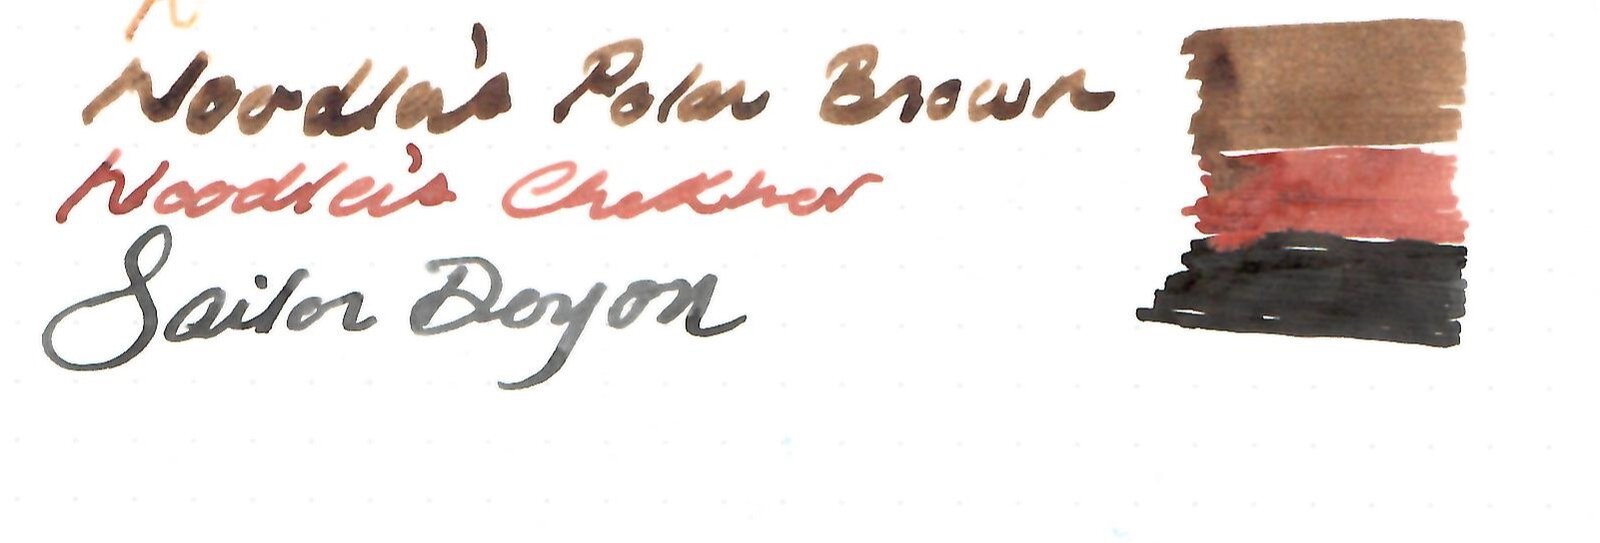 Noodler's Polar Brown
Noodler's Chekhov
Sailor Doyou